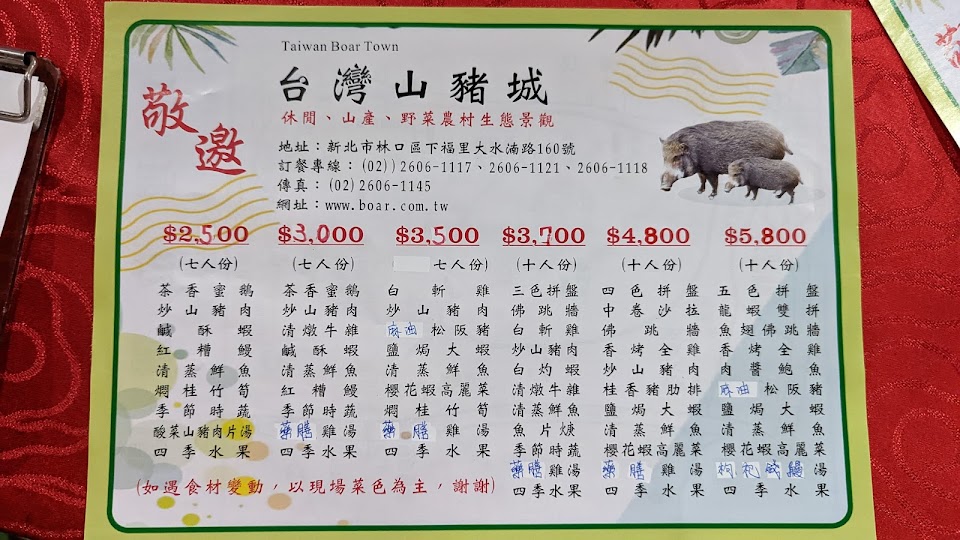 敬邀
Taiwan Boar Town
台灣山豬城
休閒、山產、野菜農村生態景觀
地址：新北市林口區下福里大水湳路160號
訂餐專線：(02))2606-1117、2606-1121、2606-1118
傳真：(02)2606-1145
網址：www.boar.com.tw
$2,500
(七人份)
茶香蜜鵝
炒山豬肉
鹹酥蝦
紅糟鰻
清蒸鮮魚
燜桂竹筍
季節時蔬
酸菜山豬肉片湯
四季水果
$3,000
(七人份)
茶香蜜鵝
炒山豬肉
清燉牛雜
鹹酥蝦
清蒸鮮魚
紅糟鰻
季節時蔬
藥膳雞湯
四季水果
$3,500
七人份)
白斬雞
炒山豬肉
麻油松阪豬
鹽焗大蝦
清蒸鮮魚
櫻花蝦高麗菜
燜桂竹筍
藥膳雞湯
四季水果
$3,700
(十人份)
三色拼盤
佛跳牆
白斬雞
炒山豬肉
白灼蝦
清燉牛雜
清蒸鮮魚
魚片焿
季節時蔬
藥膳雞湯
四季水果
$4,800
(十人份)
四色拼盤
中卷沙拉
佛跳牆
香烤全雞
炒山豬肉
桂香豬肋排
鹽焗大蝦
清蒸鮮魚
櫻花蝦高麗菜
藥膳雞湯
四季水果
$5,800
(十人份)
五色拼盤
龍蝦雙拼
魚翅佛跳牆
香烤全雞
肉醬鮑魚
麻油松阪豬
鹽焗大蝦
清蒸鮮魚
櫻花蝦高麗菜
枸杞鰻湯
四季水果
(如遇食材變動，以現場菜色為主，謝謝)